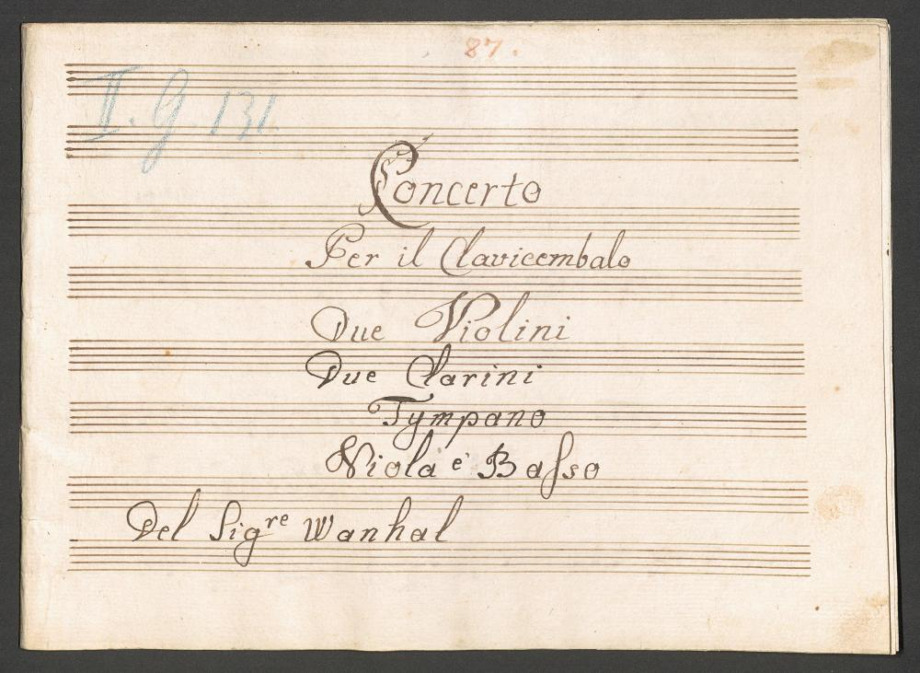 87.
II. G. 131
Concerto
Per il Clavicembalo
Due Violini
Due Clarini
Tympano
Viola è Baſso
Del Sigre Wanhal